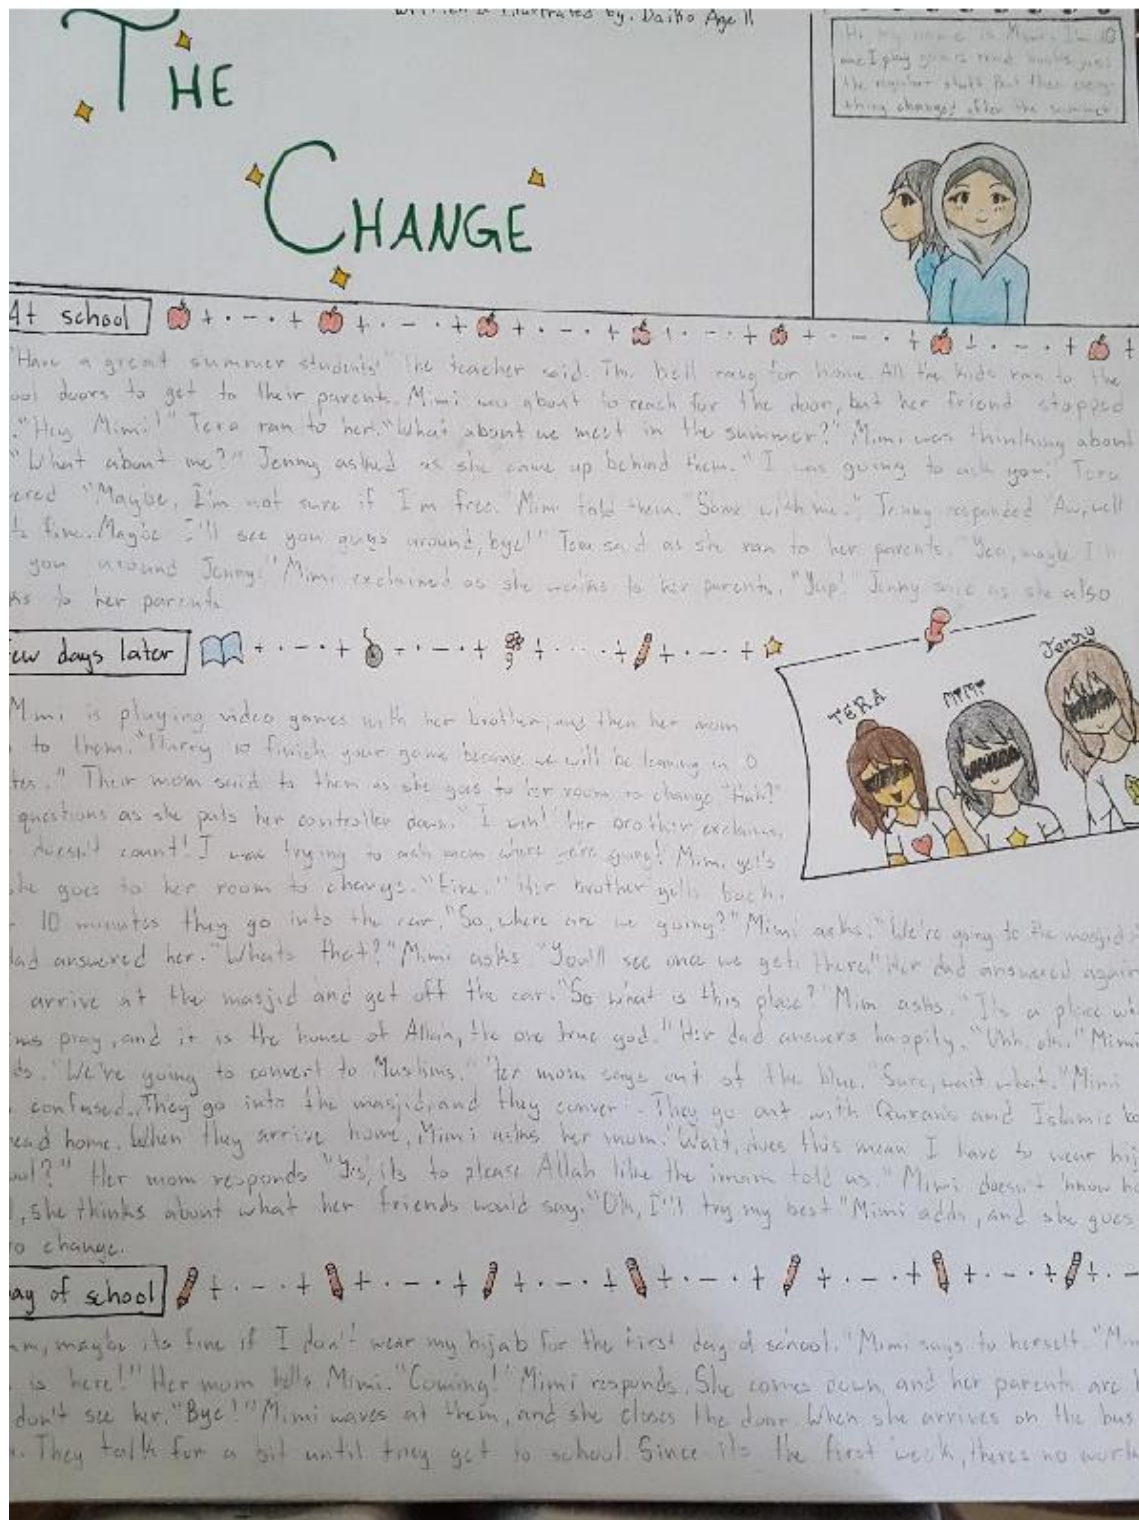 Written & Illustrated by: Daiko Age 11
THE
CHANGE
Hi, my name is Mimi. I'm 10
me I play games read books just
the regular stuff. But then every-
thing changed after the summer.
At school
"Have a great summer students" The teacher said. The bell rang for home. All the kids ran to the
ool doors to get to their parents. Mimi was about to reach for the door, but her friend stopped
."Hey Mimi!" Tera ran to her. "What about we meet in the summer?" Mimi was thinking about
"What about me?" Jenny asked as she came up behind them. "I was going to ask you." Tera
ered "Maybe, I'm not sure if I'm free." Mimi told them. "Same with me." Jenny responded Aw, well
s fine. Maybe I'll see you guys around, bye!" Tera said as she ran to her parents. "Yea, maybe I'll
you around Jenny." Mimi exclaimed as she walks to her parents. "Yup!" Jenny said as she also
ks to her parents
ew days later
TERA
MIMI
Jenny
Mimi is playing video games with her brother, and then her mom
to them. "Hurry to finish your game because we will be leaving in 0
tes." Their mom said to them as she goes to her room to change "Huh?"
questions as she puts her controller down. "I win!" Her brother exclaims.
doesn't count! I was trying to ask mom where we're going! Mimi yells
he goes to her room to change. "Fine." Her brother yells back.
10 minutes they go into the car. "So, where are we going?" Mimi asks. "We're going to the masjid
dad answered her. "Whats that?" Mimi asks "You'll see once we get there" Her dad answered again
arrive at the masjid and get off the car. "So what is this place?" Mimi asks. "Its a place wh
ms pray, and it is the house of Allah, the one true god." Her dad answers happily. "Uhh, oh." Mimi
ds. "We're going to convert to Muslims." Her mom says out of the blue. "Sure, wait what." Mimi
confused. They go into the masjid, and they conver. They go out with Qurans and Islamic bo
ead home. When they arrive home, Mimi asks her mom. "Wait, does this mean I have to wear hij
ool?" Her mom responds "Yes, its to please Allah like the imam told us." Mimi doesn't know ho
, she thinks about what her friends would say. "Oh, I'll try my best" Mimi adds, and she goes
to change.
ay of school
m, maybe its fine if I don't wear my hijab for the first day of school." Mimi says to herself. "Mi
is here!" Her mom tells Mimi. "Coming!" Mimi responds. She comes down, and her parents are
don't see her. "Bye!" Mimi waves at them, and she closes the door. When she arrives on the bus
. They talk for a bit until they get to school. Since its the first week, theres no work